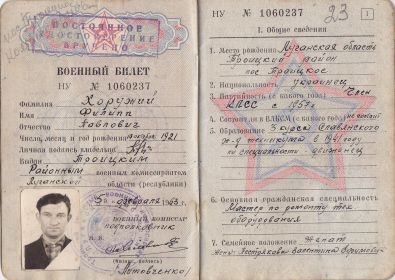 ПОСТОЯННОЕ
УДОСТОВЕРЕНИЕ
ВРУЧЕНО
ВОЕННЫЙ БИЛЕТ
НУ № 1060237
Фамилия Хоружий
Имя Филипп
Отчество Павлович
Число, месяц и год рождения 1921
Личная подпись владельца
Выдан Троицким
Районным военным комиссариатом
Луганской области (республики)
5 февраля 1963 г.
ВОЕННЫЙ КОМИССАР
подполковник
М. П.
НУ № 1060237
23
1
I. Общие сведения
1. Место рождения Луганская область
Троицкий район
пос Троицкое
2. Национальность украинец
3. Партийность (с какого года) Член
КПСС с 1957г
4. Состоит ли в ВЛКСМ (с какого года) не состоит
5. Образование 3 курса Славянского
техникума в 1941 году
по специальности
6. Основная гражданская специальность
Мастер по ремонту тех
оборудования
7. Семейное положение Женат
Жена: Валентина Ефимовна